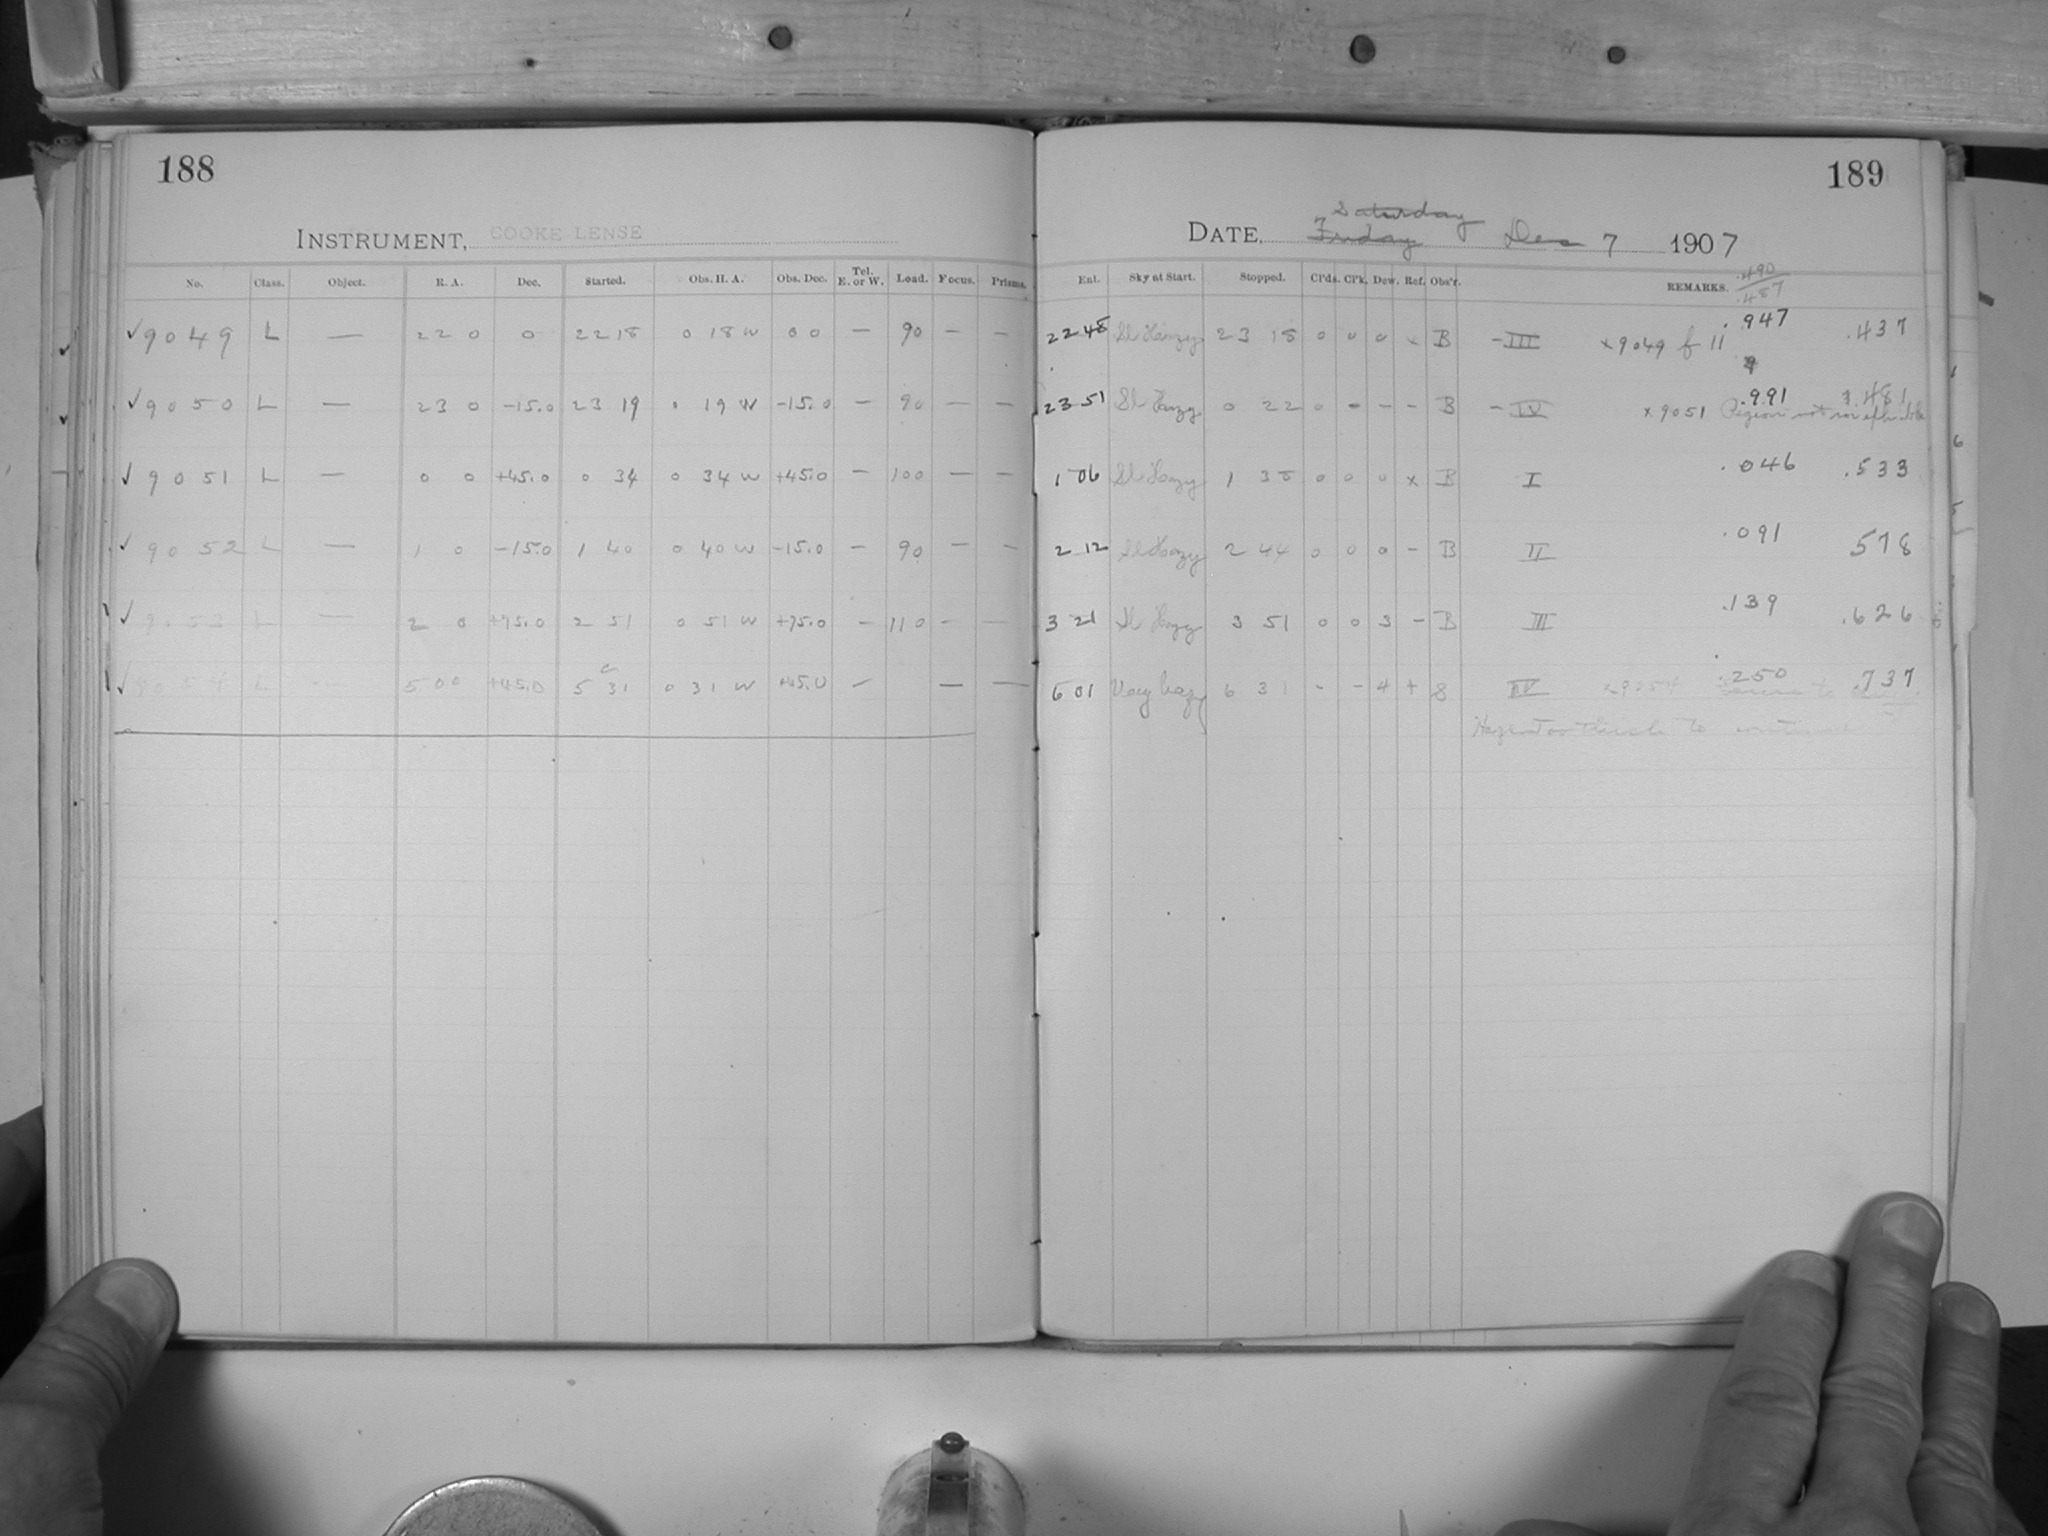 188
INSTRUMENT, COOKE LENSE
No. Class. Object. R. A. Dec. Started. Obs. H. A. Obs. Dec. Tel. E. or W. Load. Focus. Prisms.
✓ 9049 L — 22 0 0 22 18 0 18 W 0 0 — 90 — —
✓ 9050 L — 23 0 -15.0 23 19 0 19 W -15.0 — 90 — —
✓ 9051 L — 0 0 +45.0 0 34 0 34 W +45.0 — 100 — —
✓ 9052 L — 1 0 -15.0 1 40 0 40 W -15.0 — 90 — —
✓ 9053 L — 2 0 +75.0 2 51 0 51 W +75.0 — 110 — —
✓ 9054 L — 5 00 +45.0 5 31 0 31 W +45.0 — — —
189
Saturday
DATE, Friday Dec 7 1907
Ent. Sky at Start. Stopped. Cl'ds. Cl'k. Dew. Ref. Obs'r. REMARKS. .490
.487
22 48 Sl Hazy 23 18 0 0 0 x B -III x 9049 f 11 .947 .437
23 51 Sl Hazy 0 22 0 - - - B - IV x 9051 .991 .481
1 06 Sl Hazy 1 38 0 0 0 x B I .046 .533
2 12 Sl Hazy 2 44 0 0 0 - B II .091 578
3 21 Sl Hazy 3 51 0 0 3 - B III .139 .626
6 01 Very hazy 6 31 - - 4 + 8 IV x 9054 .250 .737
to